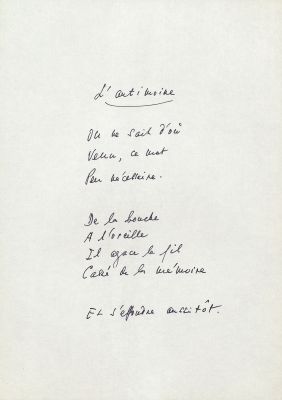 L'antimoine
On ne sait d'où
Venu, ce mot
Peu nécessaire.
De la bouche
A l'oreille
Il agace le fil
Caché de la mémoire
Et s'effondre aussitôt.